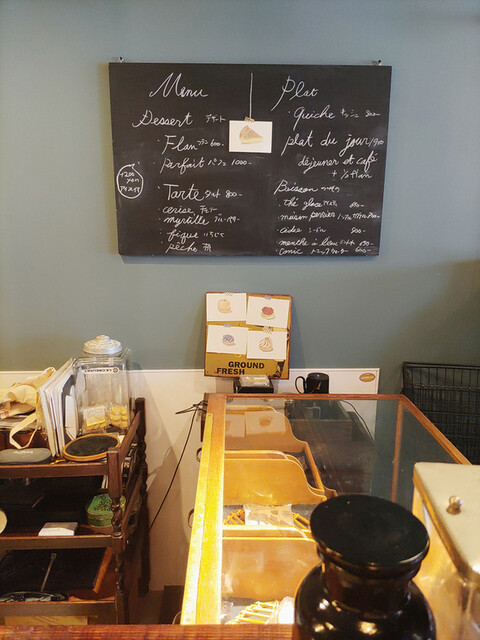 Menu
Dessert デザート
Flan フラン 600-
parfait パフェ 1000-
+200
yen
Tarte タルト 800-
cerise チェリー
myrtille ブルーベリー
figue いちじく
pêche 桃
Plat
Quiche キッシュ 800-
plat du jour
déjeuner et café
+ ½ flan
Boisson
thé glacé
cidre シードル 800-
menthe à l'eau
tonic
GROUND
FRESH
LE CREUSET